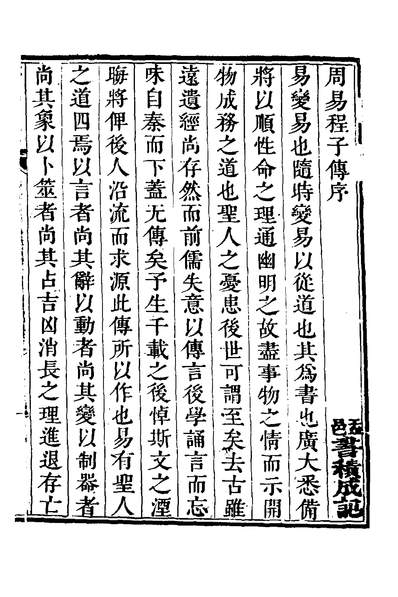 周易程子傳序
易變易也隨時變易以從道也其爲書也廣大悉備
將以順性命之理通幽明之故盡事物之情而示開
物成務之道也聖人之憂患後世可謂至矣去古雖
遠遺經尚存然而前儒失意以傳言後學誦言而忘
味自秦而下蓋无傳矣予生千載之後悼斯文之湮
晦將俾後人沿流而求源此傳所以作也易有聖人
之道四焉以言者尚其辭以動者尚其變以制器者
尚其象以卜筮者尚其占吉凶消長之理進退存亡
書積成記